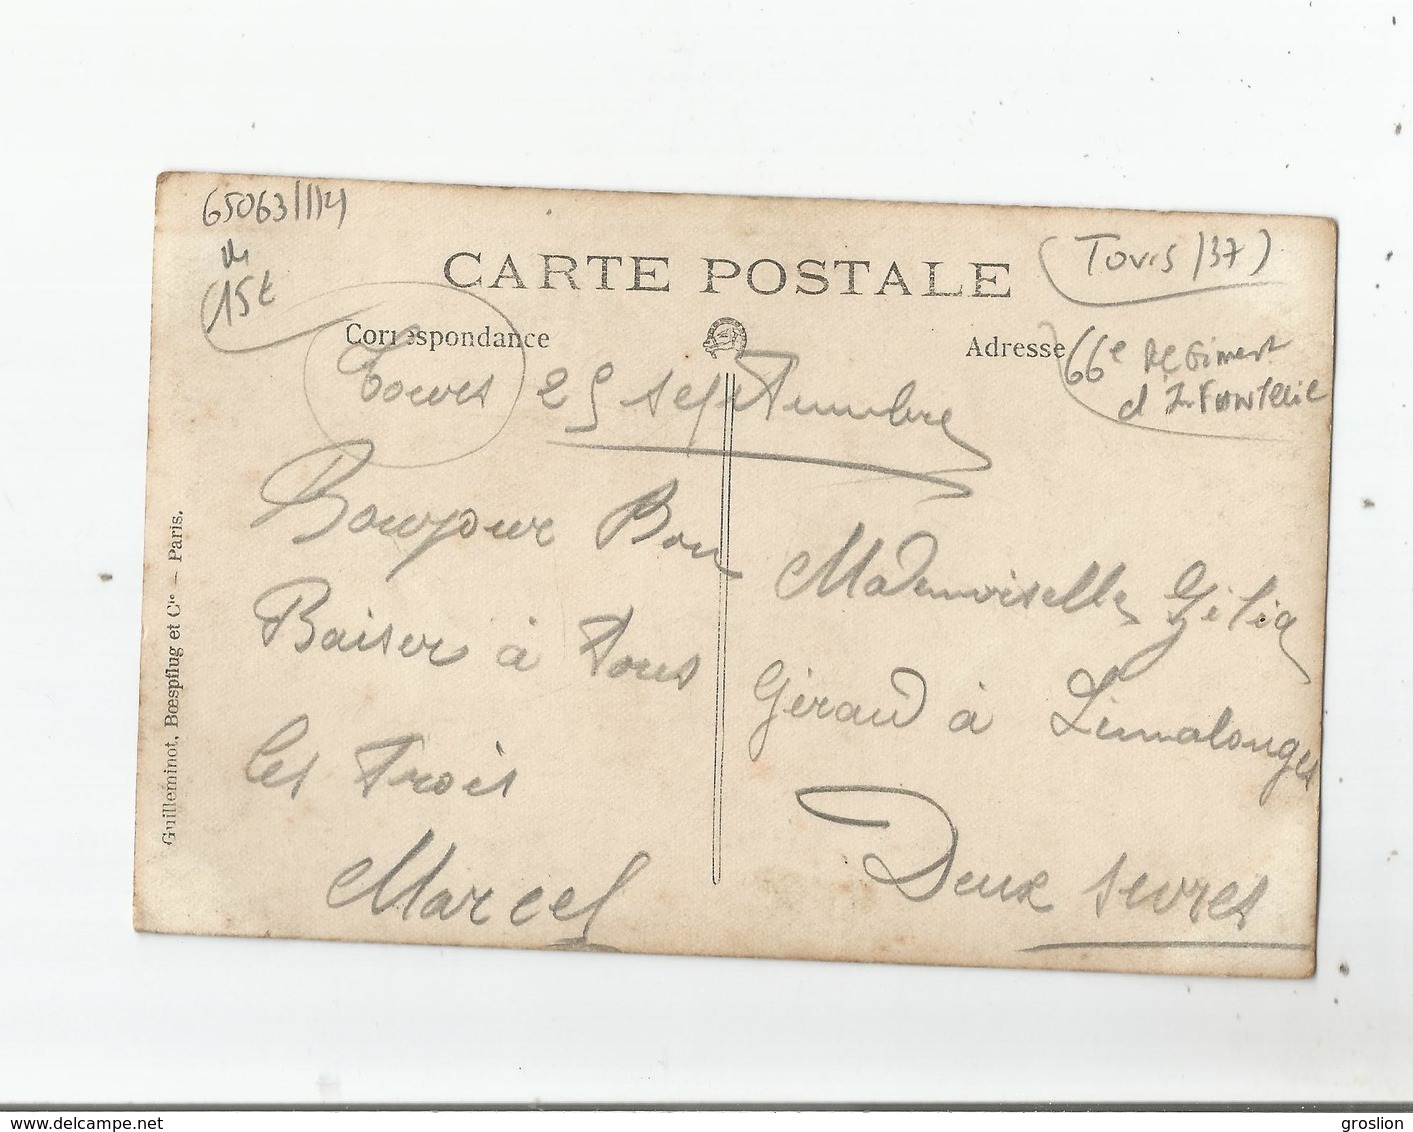 65063/114
15€
(Tours /37)
CARTE POSTALE
Correspondance
Adresse
66e Régiment
d'Infanterie
Tours 25 septembre
Bonjour Bon
Baiser à tous
les trois
Marcel
Mademoiselle Gélia
Géraud à Limalonges
Deux sevres
Guilleminot, Bœspflug et Cie – Paris.
delcampe.net
groslion